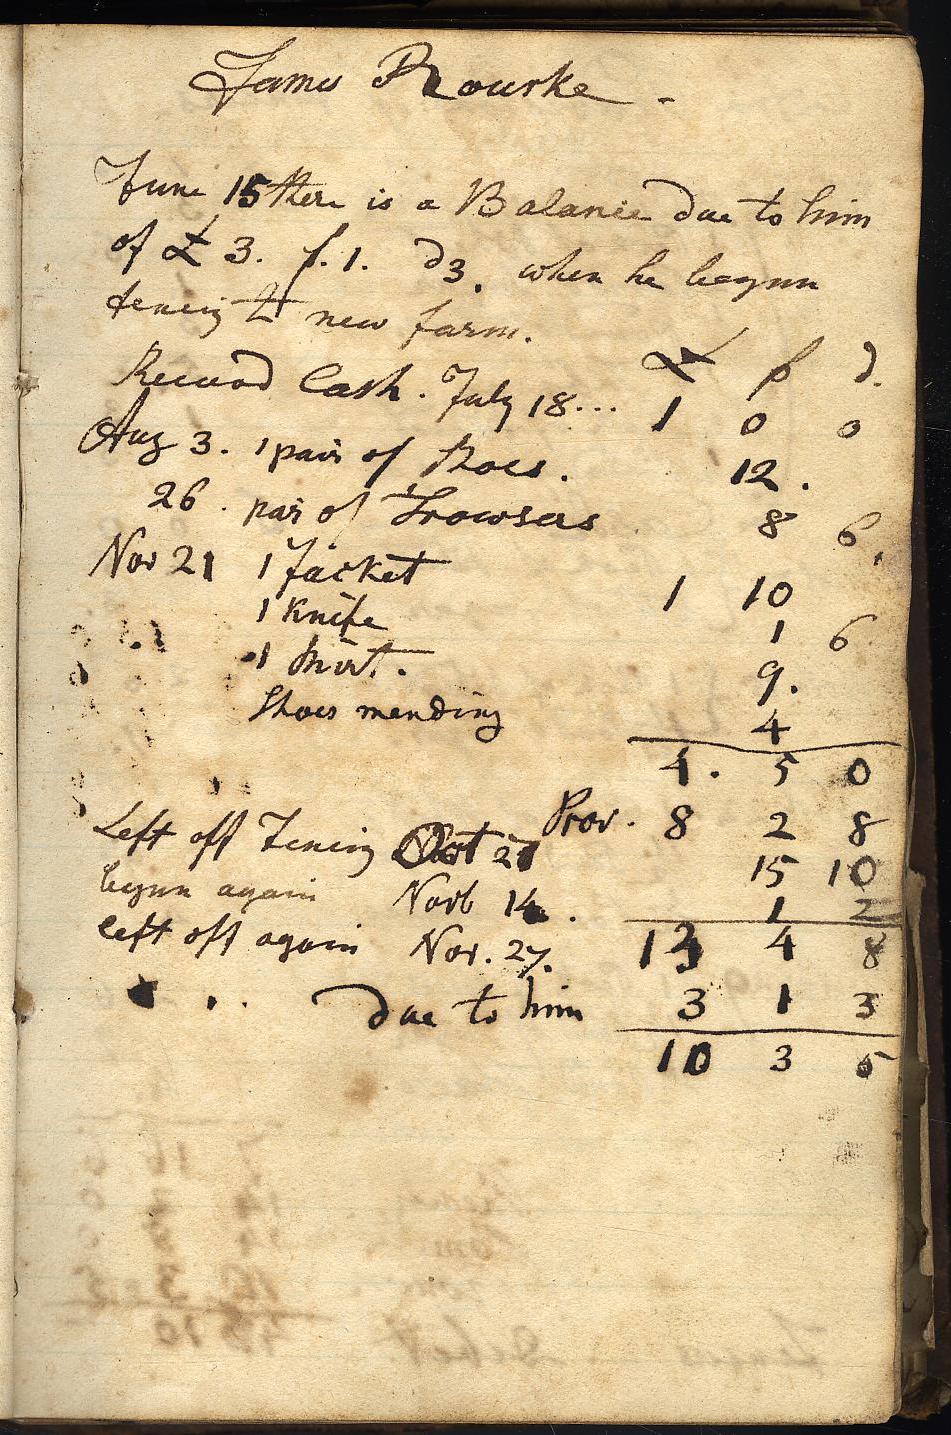 James Rourke.
June 15 there is a Balance due to him
of £ 3. s. 1. d 3. when he begun
fencig new farm.
£ s d.
Recivod Cash. July 18... 1 0 0
Aug 3. 1 pair of Shoes. 12.
26. par of Trowsers 8 6.
Nov 21 1 Jacket 1 10
1 Knife 1 6
1 Shirt. 9.
Shoes mending 4
4. 5 0
Prov. 8 2 8
Left off Fencing Oct 27 15 10
begun again Novb 14. 1 2
left off again Nov. 27. 13 4 8
due to him 3 1 3
10 3 5